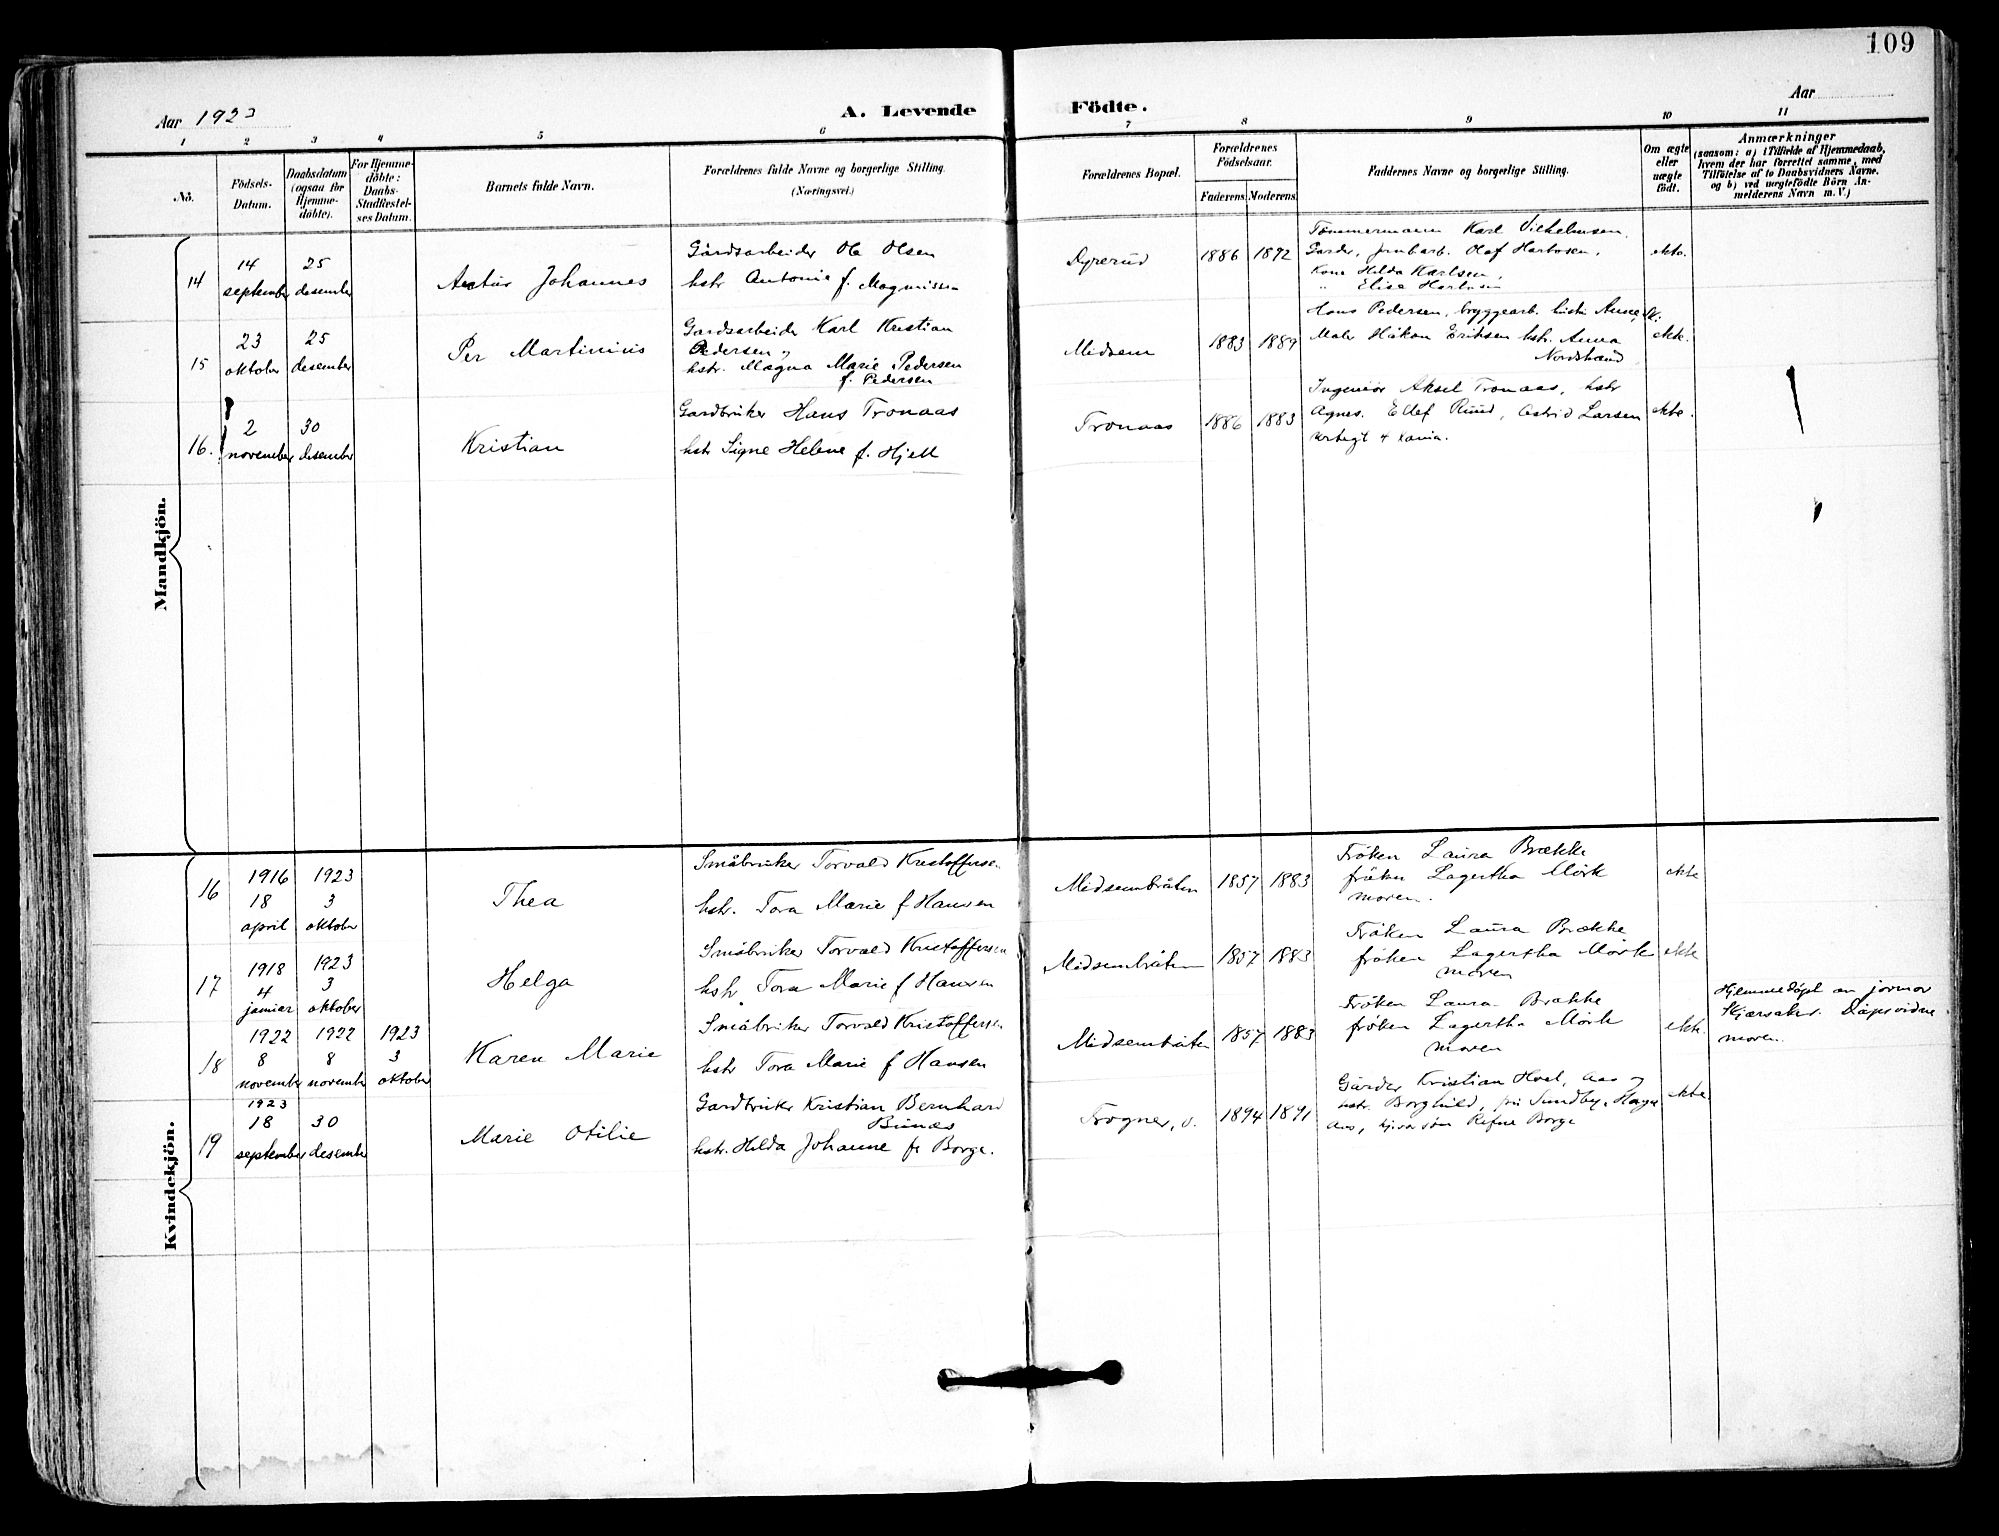 109
Aar 1923
A. Levende Födte.
Aar
1 2 3 4 5 6 7 8 9 10 11
Nö.
Födsels-
Datum.
Daabsdatum
(ogsaa for
Hjemme-
döbte).
For Hjemme-
döbte:
Daabs-
Stadfæstel-
ses Datum.
Barnets fulde Navn.
Forældrenes fulde Navne og borgerlige Stilling.
(Næringsvei.)
Forældrenes Bopæl.
Forældrenes
Födselsaar.
Faderens. Moderens.
Faddernes Navne og borgerlige Stilling.
Om ægte
eller
uægte
födt.
Anmærkninger
(saasom: a) i Tilfælde af Hjemmedaab,
hvem der har forrettet samme, med
Tilföielse af to Daabsvidners Navne,
og b) ved uægtefödte Börn An-
melderens Navn m. V.)
Mandkjön.
14
14
september
25
desember
Artur Johannes
Gårdsarbeider Ole Olsen
hstr Antonie f. Magnussen
Dyrerud
1886 1892
Tömmermann Karl Vilhelmsen,
Garder, jernbarb. Olaf Harbosen,
Kone Hilda Karlsen,
" Elise
ekte.
15
23
oktober
25
desember
Per Martinius
Gardsarbeider Karl Kristian
Pedersen,
hstr. Magna Marie Pedersen
f. Pedersen
Midsem
1883 1889
Hans Pedersen, bryggearb.
Maler Håkon Eriksen hstr. Anna
Nordstrand
ekte.
16.
2
november
30
desember
Kristian
Gardbruker Hans Tronaas
hstr Signe Helene f. Hjell
Tronaas
1886 1883
Ingeniör Aksel Tronaas, hstr
Agnes. Ellef Ruud, Astrid Larsen
ekte.
Kvindekjön.
16
1916
18
april
1923
3
oktober
Thea
Småbruker Torvald Kristoffersen
hstr. Tora Marie f Hansen
Midsembråten
1857 1883
Fröken Laura Brække
fröken Lagertha Mörk
moren.
ekte
17
1918
4
januar
1923
3
oktober
Helga
Småbruker Torvald Kristoffersen
hstr Tora Marie f Hansen
Midsembråten
1857 1883
Fröken Laura Brække
fröken Lagertha Mörk
moren
ekte
18
1922
8
november
1922
8
november
1923
3
oktober
Karen Marie
Småbruker Torvald Kristoffersen
hstr Tora Marie f Hansen
Midsembråten
1857 1883
Fröken Laura Brække
fröken Lagertha Mörk
moren
ekte.
Hjemmedöpt av jormor
Dåpsvidne
moren.
19
1923
18
september
30
desember
Marie Otilie
Gardbruker Kristian Bernhard
Bunæs
hstr. Hilda Johanne f.Borge.
Frogner, ö.
1894 1891
Gårder Kristian Hoel, Aas og
hstr. Borghild, fru Sundby,
Aas, Borge
ekte